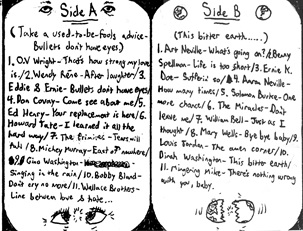 Side A
(Take a used-to-be-fools advice-
Bullets don't have eyes)
1. O.V Wright- That's how strong my love
is./2. Wendy Rene- After laughter/3.
Eddie & Ernie- Bullets don't have eyes/
4. Don Covay- Come see about me/5.
Ed Henry- Your replacement is here/6.
Howard Tate- I learned it all the
hard way/7. The
Mickey Murray- East of nowhere/
Gino Washington-
Singing in the rain/10. Bobby Bland-
Don't cry no more/11. Wallace Brothers-
Line between love & hate...
Side B
(This bitter earth.....)
1. Art Neville- What's going on?/2. Benny
Spellman- Life is too short/3. Ernie K.
Doe- so/4. Aaron Neville-
How many times/5. Solomon Burke- One
more chance/6. The Miracles- Don't
leave me/7. William Bell- Just as I
thought/8. Mary Wells- Bye bye baby/9.
Louis Jordan- The amen corner/10.
Dinah Washington- This bitter earth/
11. Ringering Mike- There's nothing wrong
with you, baby.